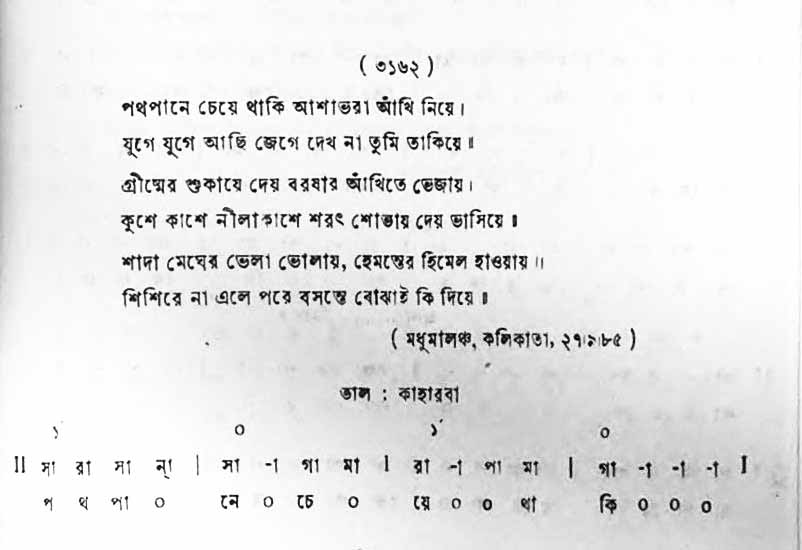 ( ৩১৬২ )
পথপানে চেয়ে থাকি আশাভরা আঁখি নিয়ে ।
যুগে যুগে আছি জেগে দেখ না তুমি তাকিয়ে ॥
গ্রীষ্মের শুকায়ে দেয় বরষার আঁখিতে ভেজায় ।
কুশে কাশে নীলাকাশে শরৎ শোভায় দেয় ভাসিয়ে ॥
শাদা মেঘের ভেলা ভোলায়, হেমন্তের হিমেল হাওয়ায় ॥
শিশিরে না এলে পরে বসন্তে বোঝাই কি দিয়ে ॥
( মধুমালঞ্চ, কলিকাতা, ২৭।৯।৮৫ )
তাল : কাহারবা
১´ ০ ১´ ০
II সা রা সা ন্া | সা -া গা মা I রা -া পা মা | গা -া -া -া I
প থ পা ০ নে ০ চে ০ য়ে ০ ০ থা কি ০ ০ ০